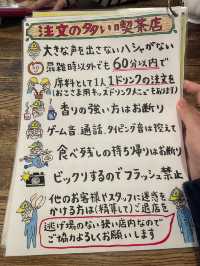 注文の多い喫茶店
大きな声を出さない ハシャがない
混雑時以外でも 60分以内で
原則として1人1ドリンクの注文を
(おこさま用キッズドリンクメニューもあります)
香りの強い方はお断り
ゲーム音、通話、タイピング音は控えて
食べ残しの持ち帰りはお断り
ビックリするのでフラッシュ禁止
他のお客様やスタッフに迷惑を
かける方は(精算して)ご退店を
逃げ場のない狭い店内なので
ご協力よろしくお願いします